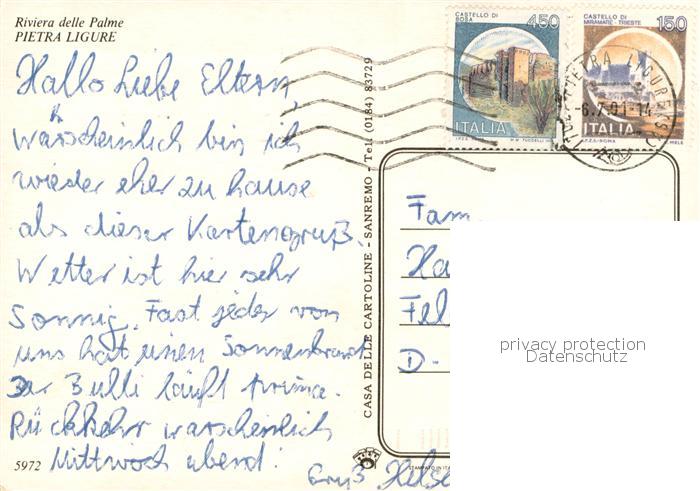 Riviera delle Palme
PIETRA LIGURE
Hallo Liebe Eltern,
warscheinlich bin ich
wieder eher zu hause
als dieser Kartengruß.
Wetter ist hier sehr
Sonnig. Fast jeder von
uns hat einen Sonnenbrand
Der Bulli läuft prima.
Rückkehr warscheinlich
Mittwoch abend!
Gruß
5972
CASA DELLE CARTOLINE - SANREMO - Tel. (0184) 83729
CASTELLO DI
BOSA
450
ITALIA
CASTELLO DI
MIRAMARE - TRIESTE
150
ITALIA
PIETRA LIGURE
-6.7.91-14
Fam.
Ha
Fel
D-
privacy protection
Datenschutz